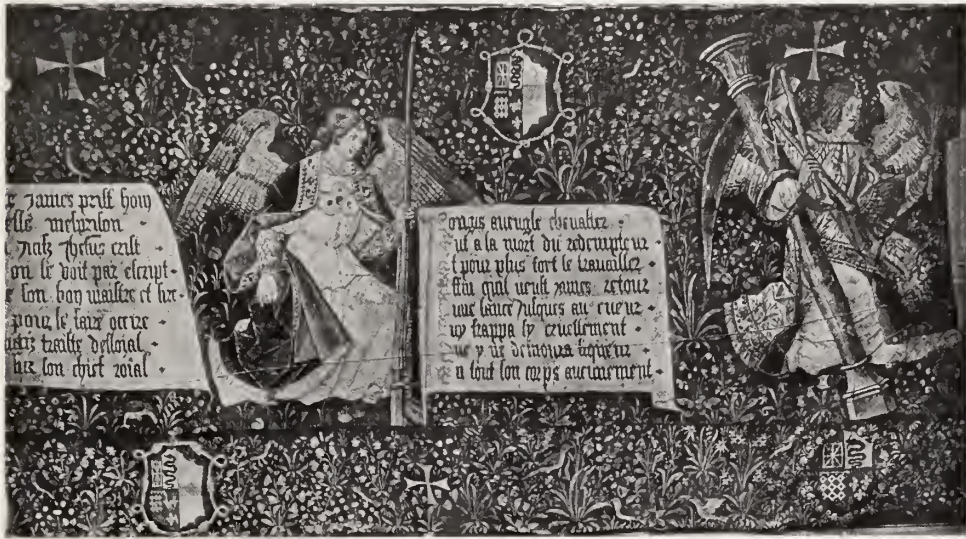 James prist hom
elle mesprison
Juifz Jhesus crist
on le voit par escript
son bon maistre et
pour le faire occire
traistre desloial
son christ roial
ongis aveugle chevalier
ut a la mort du redempteur
t pour plus fort le travailler
ffin quil neust james retour
une lance jusques au cueur
frappa sy cruellement
ne demoura liqueur
tout son corps aucunement